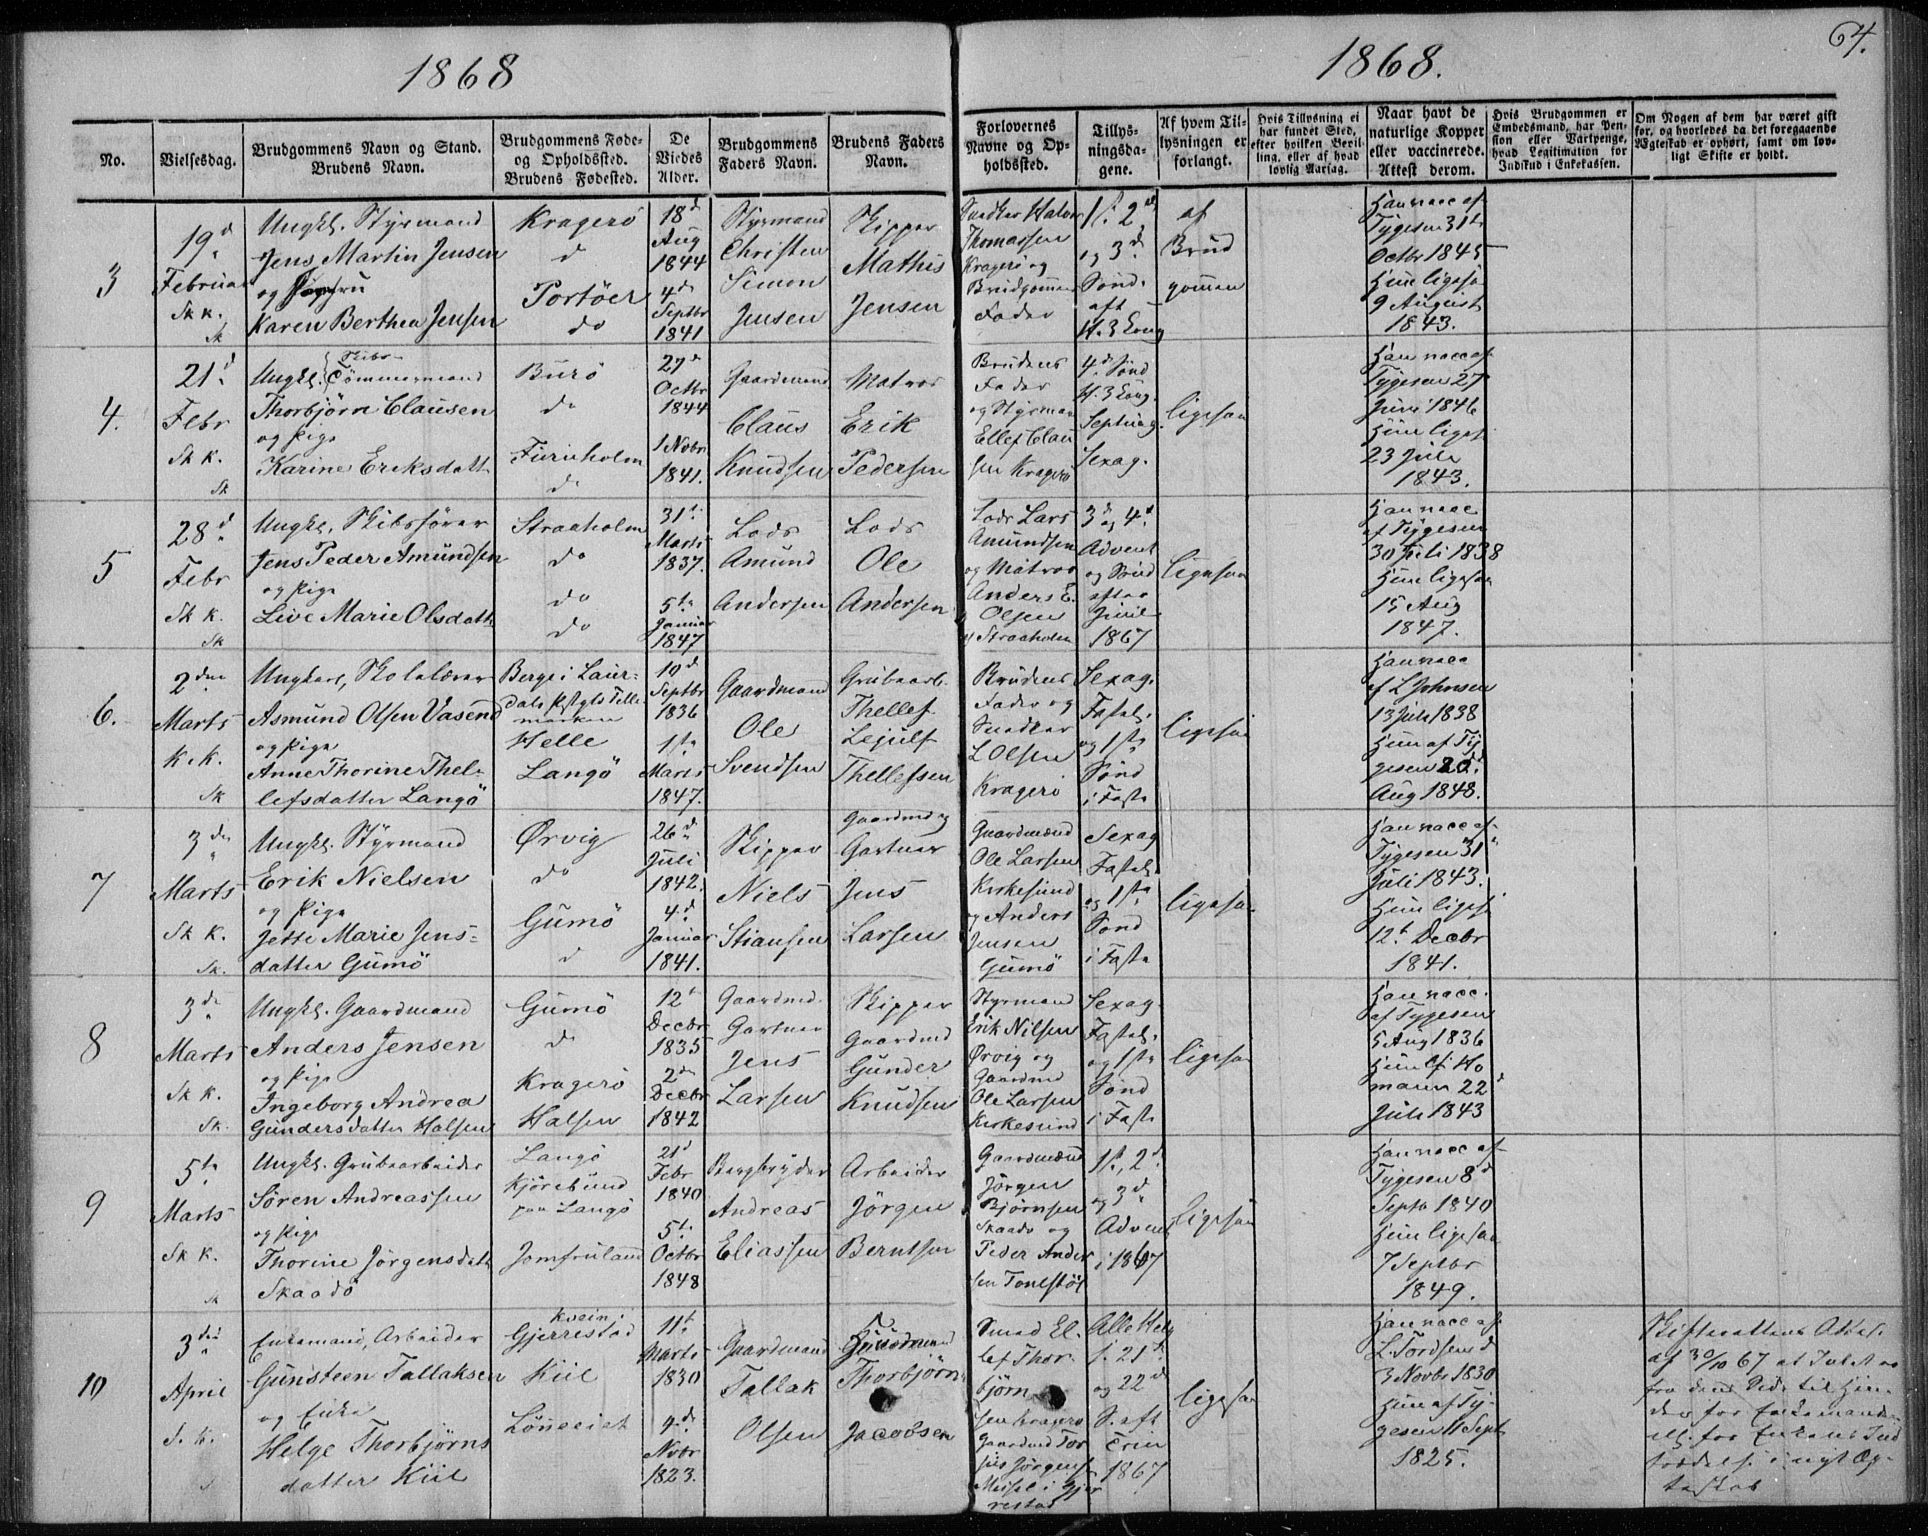 1868
1868.
64.
No.
Vielsesdag.
Brudgommens Navn og Stand.
Brudens Navn.
Brudgommens Føde-
og Opholdssted.
Brudens Fødested.
De
Viedes
Alder.
Brudgommens
Faders Navn.
Brudens Faders
Navn.
Forlovernes
Navne og Op-
holdssted.
Tillys-
ningsda-
gene.
Af hvem Til-
lysningen er
forlangt.
Hvis Tillysning ei
har fundet Sted,
efter hvilken Bevil-
ling, eller af hvad
lovlig Aarsag.
Naar havt de
naturlige Kopper
eller vaccinerede.
Attest derom.
Hvis Brudgommen er
Embedsmand, har Pen-
sion eller Vartpenge,
hvad Legitimation for
Indskud i Enkekassen.
Om Nogen af dem har været gift
før, og hvorledes da det foregaaende
Ægteskab er ophørt, samt om lov-
ligt Skifte er holdt.
3
19d
Februar
Sk k.
Sk
Ungkl. Styrmand
Jens Martin Jensen
og
Karen Berthea Jensen
Kragerö
d
Portöer
do
18d
Aug
1844
4de
Septbr
1841
Styrmand
Christen
Simon
Jensen
Skipper
Mathis
Jensen
Snedker Halvor
Thomassen
Kragerö og
Brudgommens
Fader
1st. 2d
og 3d
Sönd.
aft
H. 3 Kong
af
Brud
gommen
Han vacc af
Tygesen 31te
Octbr 1845
Hun ligesaa
9 August
1843.
4.
21d
Febr
Sk k.
Sk
Ungkl. Skibs
Tömmermand
Thorbjörn Clausen
og Pige
Karine Eriksdatt
Burö
do
Furuholm
do
27d
Octbr
1844
1 Novbr
1841.
Gaardmand
Claus
Knudsen
Matros
Erik
Pedersen
Brudens
Fader
og Styrman
Ellef Clau
sen Kragerö
4d Sönd
H. 3 Kong.
Septuag.
Sexag.
ligesaa
Han vacc af
Tygesen 27
Juni 1846
Hun liges
23 Juli
1843.
5
28d
Febr
Sk k.
Sk
Ungkl, Skibsförer
Jens Peder Amundsen
og Pige
Live Marie Olsdatt
Straaholm
do
do
do
31te
Marts
1837.
5te
Januar
1847
Lods
Amund
Andersen
Lods
Ole
Andersen
Lods Lars
Amundsen
og Matros
Anders E.
Olsen
Straaholm
3d og 4d
Advent
og Sönd
efter
Juul
1867
ligesaa
Han vacc
af Tygesen
30 Juli 1838
Hun ligesaa
15 Aug
1847.
6.
2den
Marts
K. K.
Sk
Ungkarl, Skolelærer
Asmund Olsen Vasend
og Pige
Anne Thorine Thel-
lefsdatter Langö
Berge i Laur-
dals Pstgld Telle-
marken
Helle
Langö
10d
Septbr
1836
1ste
Marts
1847.
Gaardmand
Ole
Svendsen
Grubearb.
Thellef
Lejulf
Thellefsen
Brudens
Fader og
Snedker
L Olsen
Kragerö
Sexag.
Fastel.
og 1ste
Sönd
i Faste
ligesaa
Han vacc
af L Johnsen
13 Juli 1838
Hun af Ty
gesen 20d
Aug 1848.
7
3die
Marts
Sk K.
Sk.
Ungkl. Styrmand
Erik Nielsen
og Pige
Jette Marie Jens-
datter Gumö
Ørvig
do
Gumö
d
26d
Juli
1842.
4d
Januar
1841.
Skipper
Niels
Stiansen
Gaardmd og
Gartner
Jens
Larsen
Gaardmænd
Ole Larsen
Kirkesund
og Anders
Jensen
Gumö
Sexag
Fastel.
og 1ste
Sönd
i Faste
ligesaa
Han vacc af
Tygesen 31
Juli 1843.
Hun liges
12te Decbr
1841.
8
3die
Marts
Sk K.
Sk.
Ungkl. Gaardmand
Anders Jensen
og Pige
Ingeborg Andrea
Gundersdatter Halsen
Gumö
do
Kragerö
Halsen
12te
Decbr
1835
2den
Decbr
1842
Gaardmd.
Gartner
Jens
Larsen
Skipper
Gaardmd
Gunder
Knudsen
Styrmand
Erik Nilsen
Ørvig og
Gaardmd
Ole Larsen
Kirkesund
Sexag.
Fastel.
og 1ste
Sönd
i Faste
ligesaa
Han vacc.
af Tygesen
5 Aug 1836
Hun af Ho
mann 22d
Juli 1843
9
5te
Marts
Sk K.
Sk
Ungkl. Grubearbeider
Sören Andreassen
og Pige
Thorine Jörgensdatt
Skaadö
Langö
Kjörebund
paa Langö
Jomfruland
21d
Febr
1840
5te
Octbr
1848
Bergbryder
Andreas
Eliassen
Arbeider
Jörgen
Berntsen
Gaardmænd
Jörgen
Björnsen
Skaadö og
Peder Ander
sen Tonestöl
1st, 2d
og 3d
Advent
i 1867
ligesaa
Han vacc af
Tygesen 8d
Septb 1840
Hun ligesaa
7 Septbr
1849.
10
3die
April
S. K.
Enkemand, Arbeider
Gunsteen Tallaksen
og Enke
Helge Thorbjörns
datter Kiil
Kvein i
Gjerrestad
Kiil
Löneeiet
11te
Marts
1830
4de
Novbr
1823.
Gaardmand
Tallak
Olsen
Thorbjörn
Jacobsen
Smed El-
lef Thor-
björn-
sen Kragerö
Gaardmd Tor
jus Jörgens
i Gjer
restad
Alle Helg
f. 21de
og 22d
S. aft
Trin
1867
ligesaa
Han vacc af
L Tordsen d
3 Novbr 1830
Hun af Ty-
gesen 11 Sept
1825.
Skifterettens Attest
af 30/10 67 at Intet er
fra dens Side til Hin-
der for Enkemandens
ell. for Enkens Ind
trædelse i nyt Æg-
teskab